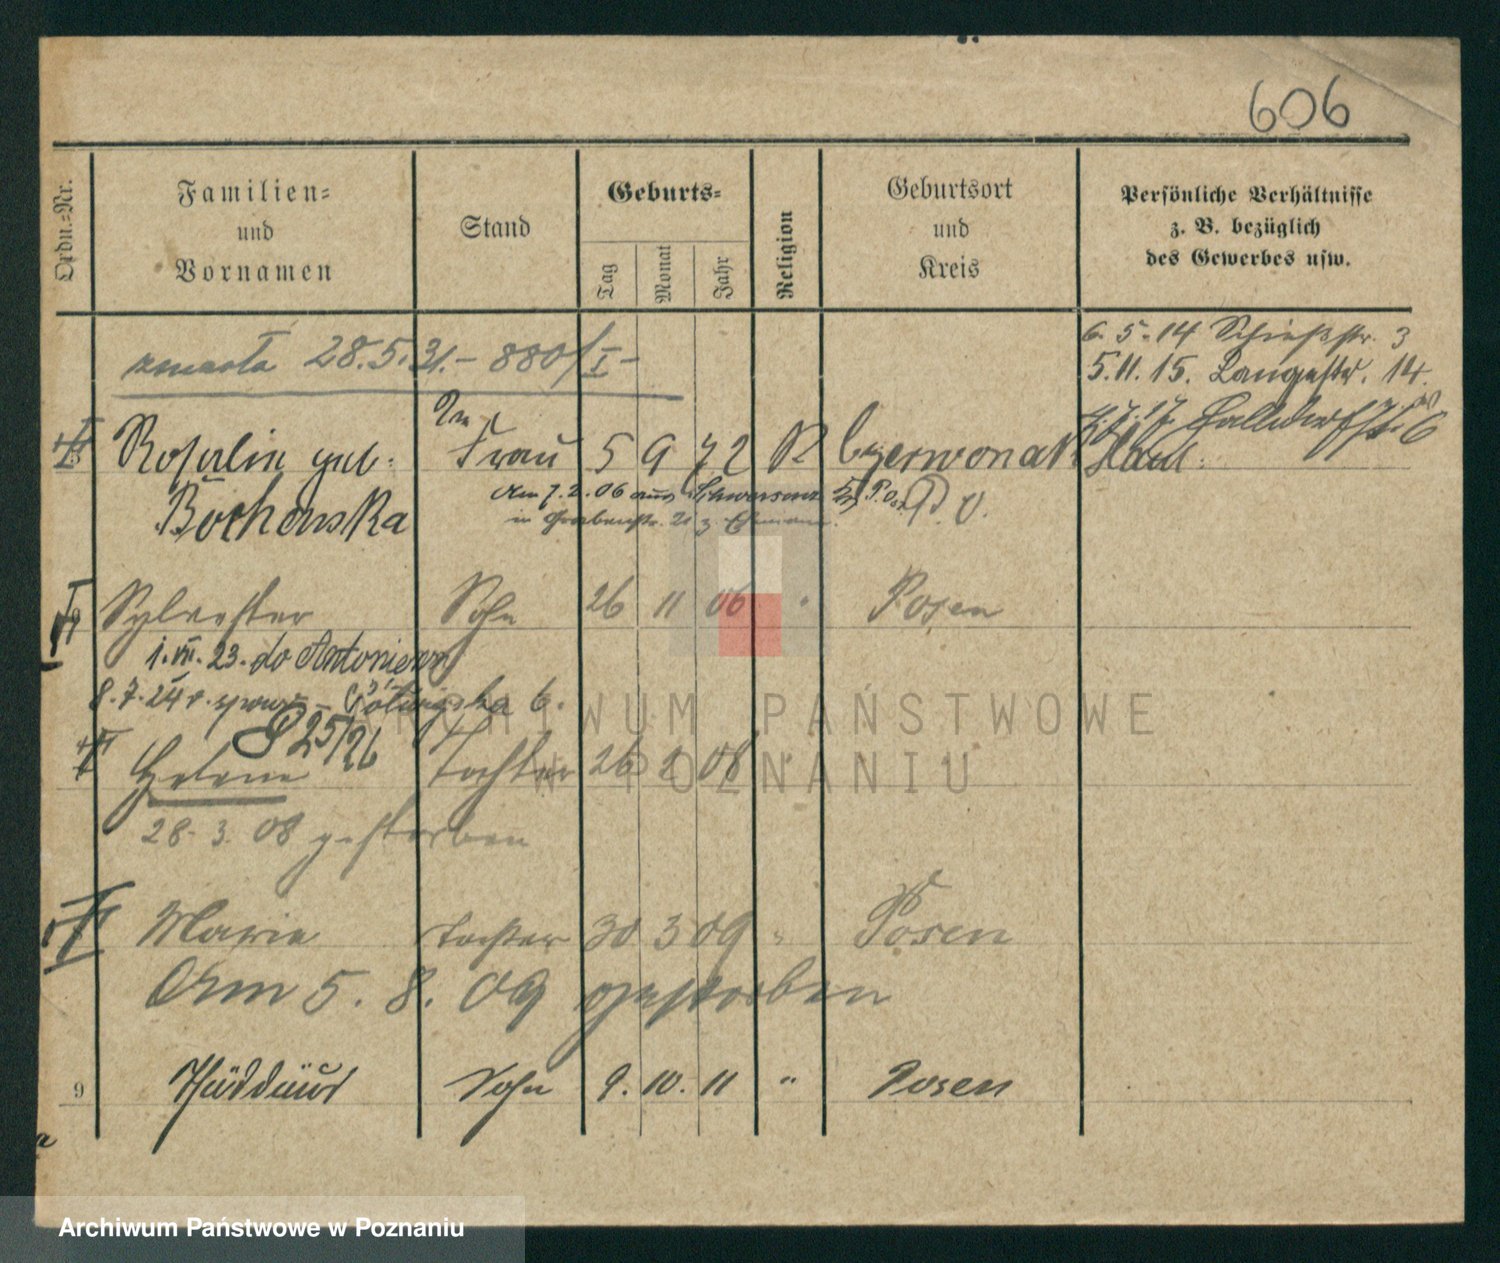 606
Ordn.=Nr.
Familien=
und
Vornamen
Stand
Geburts=
Tag
Monat
Jahr
Religion
Geburtsort
und
Kreis
Persönliche Verhältnisse
z. B. bezüglich
des Gewerbes usw.
zmarła 28.5.31.- 880/I-
6.5.14 Schießstr. 3
5.11.15. Langestr. 14.
Rosalie geb. Frau 5 9 72 R Czerwonak
Bochenska
Am 7.2.06 aus Schwersenz
in Grabenstr. 21 z. Ehemann.
P. O.
Sylvester Sohn 26 11 06 Posen
1.VII.23. do Antoniewo
8.7.24 r. 6.
25/26
Helene Tochter 26 08
28.3.08 gestorben
Marie Tochter 30 3 09 " Posen
Am 5.8.09 gestorben
9 Thaddäus Sohn 9. 10. 11 " Posen
ARCHIWUM PAŃSTWOWE
W POZNANIU
Archiwum Państwowe w Poznaniu